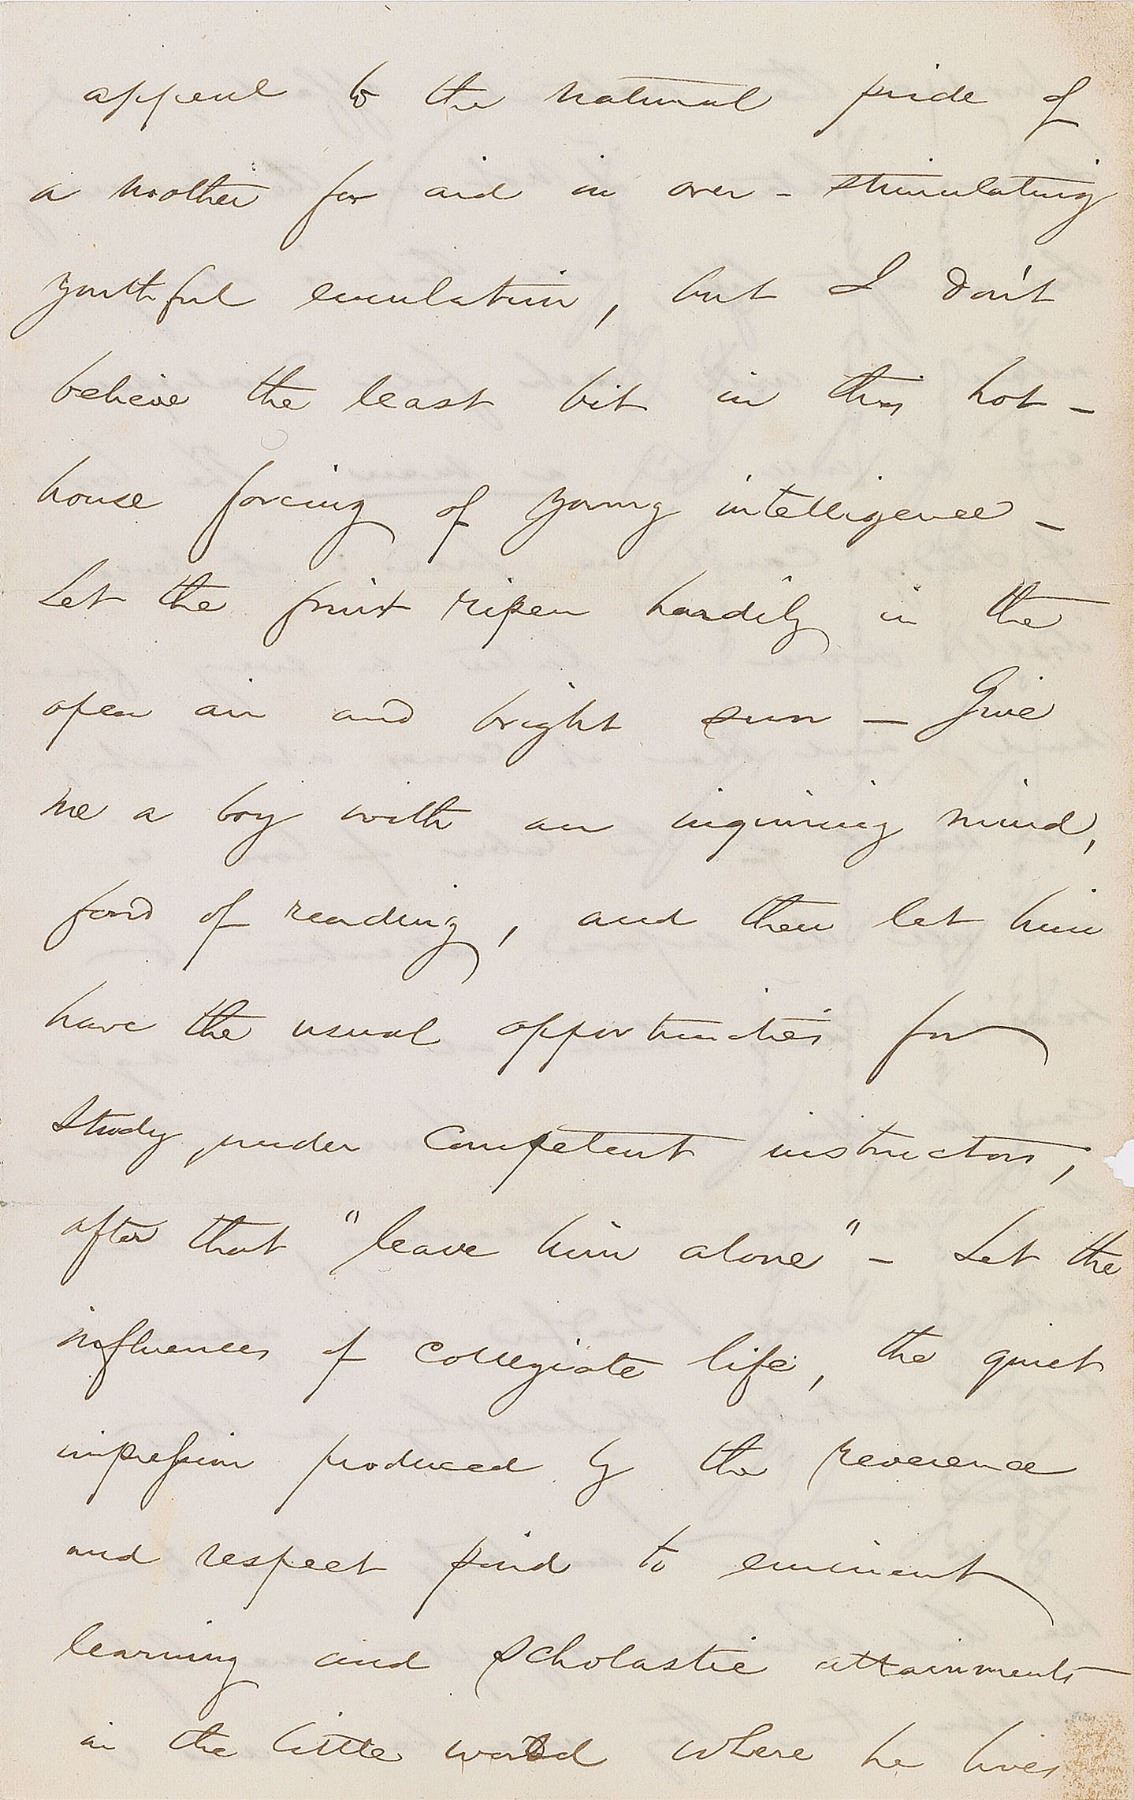 appeal to the natural pride of
a mother for aid in over - stimulating
youthful emulation, but I don't
believe the least bit in this hot -
house forcing of young intelligence -
Let the fruit ripen hardily in the
open air and bright sun - Give
me a boy with an inquiring mind,
fond of reading, and then let him
have the usual opportunities for
study under competent instructors,
after that "leave him alone" - Let the
influences of collegiate life, the quiet
impression produced by the reverence
and respect paid to eminent
learning and scholastic attainments
in the little world where he lives